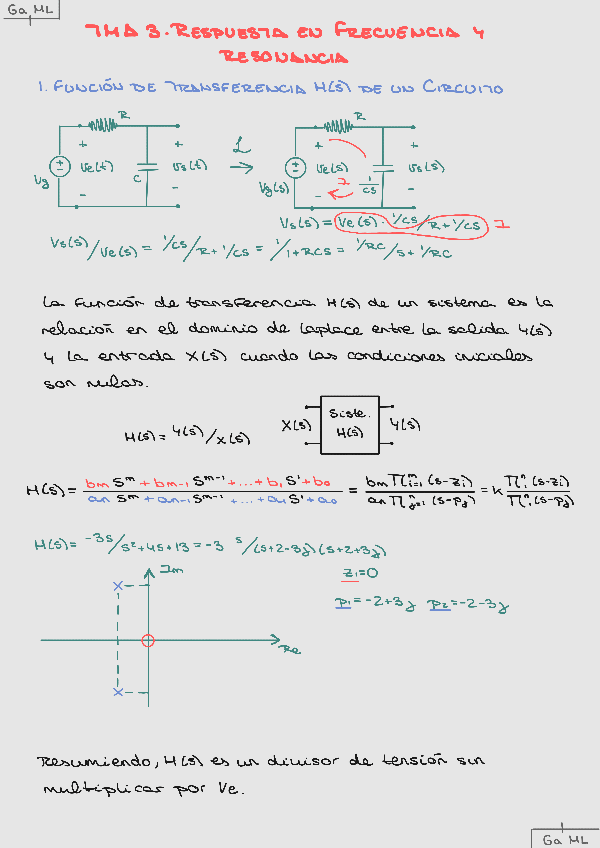 Ga ML
TMA 3. RESPUESTA EN FRECUENCIA Y
RESONANCIA
1. FUNCIÓN DE TRANSFERENCIA H(S) DE UN CIRCUITO
R
R
+ +
L
+ +
Vg Ve(t) C Vs(t)
Vg(s) Ve(s) I 1/CS Vs(s)
- -
- -
Vs(s) = Ve(s) · 1/CS / R + 1/CS I
Vs(s)/Ve(s) = 1/CS / R + 1/CS = 1/1+RCS = 1/RC / S + 1/RC
La función de transferencia H(s) de un sistema es la
relación en el dominio de Laplace entre la salida Y(s)
y la entrada X(s) cuando las condiciones iniciales
son nulas.
H(s) = Y(s)/X(s)
X(s) Siste. H(s) Y(s)
H(s) = bm S^m + bm-1 S^m-1 + ... + b1 S^1 + b0 / an S^m + an-1 S^m-1 + ... + a1 S^1 + a0 = bm ∏^m i=1 (s-zi) / an ∏^n j=1 (s-pj) = k ∏^n 1 (s-zi) / ∏^n 1 (s-pj)
H(s) = -3s/s²+4s+13 = -3 s/(s+2-3j)(s+2+3j)
Im
z1=0
p1 = -2+3j p2 = -2-3j
Re
Resumiendo, H(s) es un divisor de tensión sin
multiplicar por Ve.
Ga ML